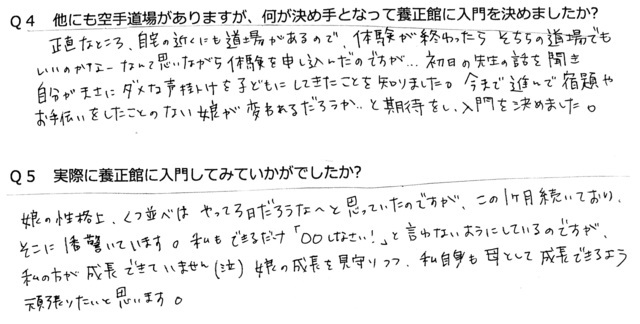 Q4 他にも空手道場がありますが、何が決め手となって養正館に入門を決めましたか?
正直なところ、自宅の近くにも道場があるので、体験が終わったら そちらの道場でも
いいのかなーなんて思いながら体験を申し込んだのですが… 初日の先生の話を聞き
自分がまさにダメな声掛けを子どもにしてきたことを知りました。今まで進んで宿題や
お手伝いをしたことのない娘が変わるだろうか…と期待をし、入門を決めました。
Q5 実際に養正館に入門してみていかがでしたか?
娘の性格上、くつ並べは やって3日だろうなへと思っていたのですが、この1ヶ月続いており、
そこに1番驚いています。私もできるだけ「〇〇しなさい!」と言わないようにしているのですが、
私の方が成長できていません(泣) 娘の成長を見守りつつ、私自身も母として成長できるよう
頑張りたいと思います。